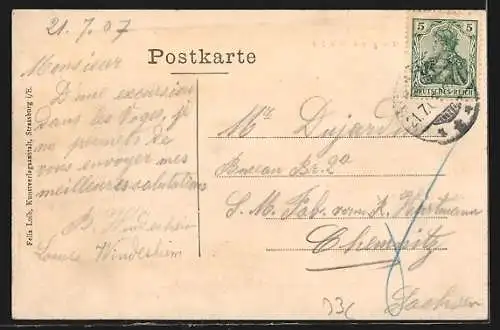 21. 7. 07
Postkarte
Monsieur
D'une excursion
dans les Voges, je
me permets de
vous envoyer mes
meilleures salutations
B. Windesheim
Louise Windesheim
Felix Luib, Kunstverlagsanstalt, Strassburg i/E.
5 5
DEUTSCHES REICH
21.7.
Mr. Dujardin
Bureau Br. 2a
S. M. Fab. vorm. R. Hartmann
Chemnitz
Sachsen